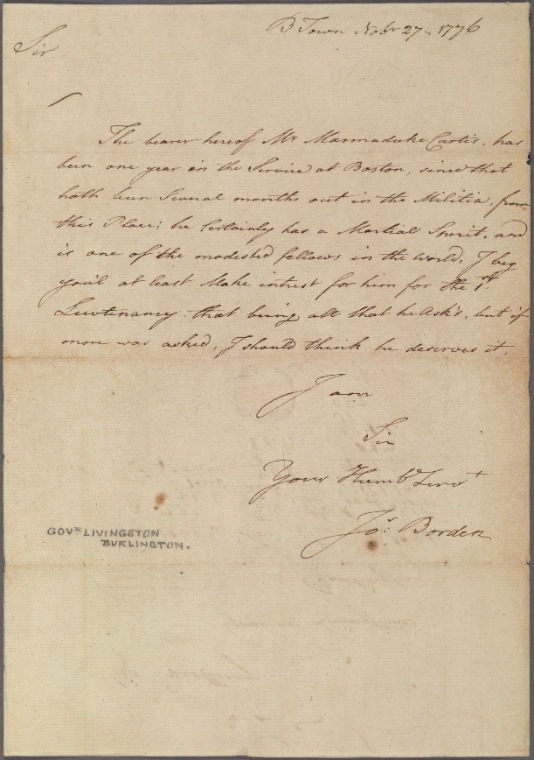 B Town Nobr 27, 1776
Sir
The bearer hereof Mr Marmaduke Curtis, has
been one year in the Service at Boston, since that
hath been Several months out in the Militia, from
this Place; he Certainly has a Martial Spirit, and
is one of the modeshed fellows in the world, I beg
you'l at least Make intrest for him for the 1st
Lieutenancy that being all that he Ask's, but if
more was asked, I should think he deserves it.
I am
Sir
Your Humbe Servt
Jos. Borden
GOVR LIVINGSTON
BURLINGTON.